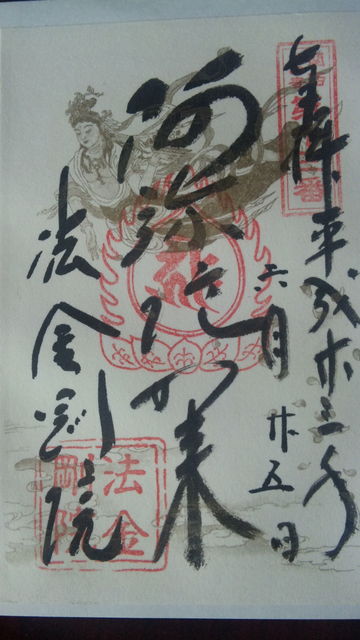 奉拝 平成廿三年
六月廿五日
阿弥陀如来
法金剛院
法金
剛院